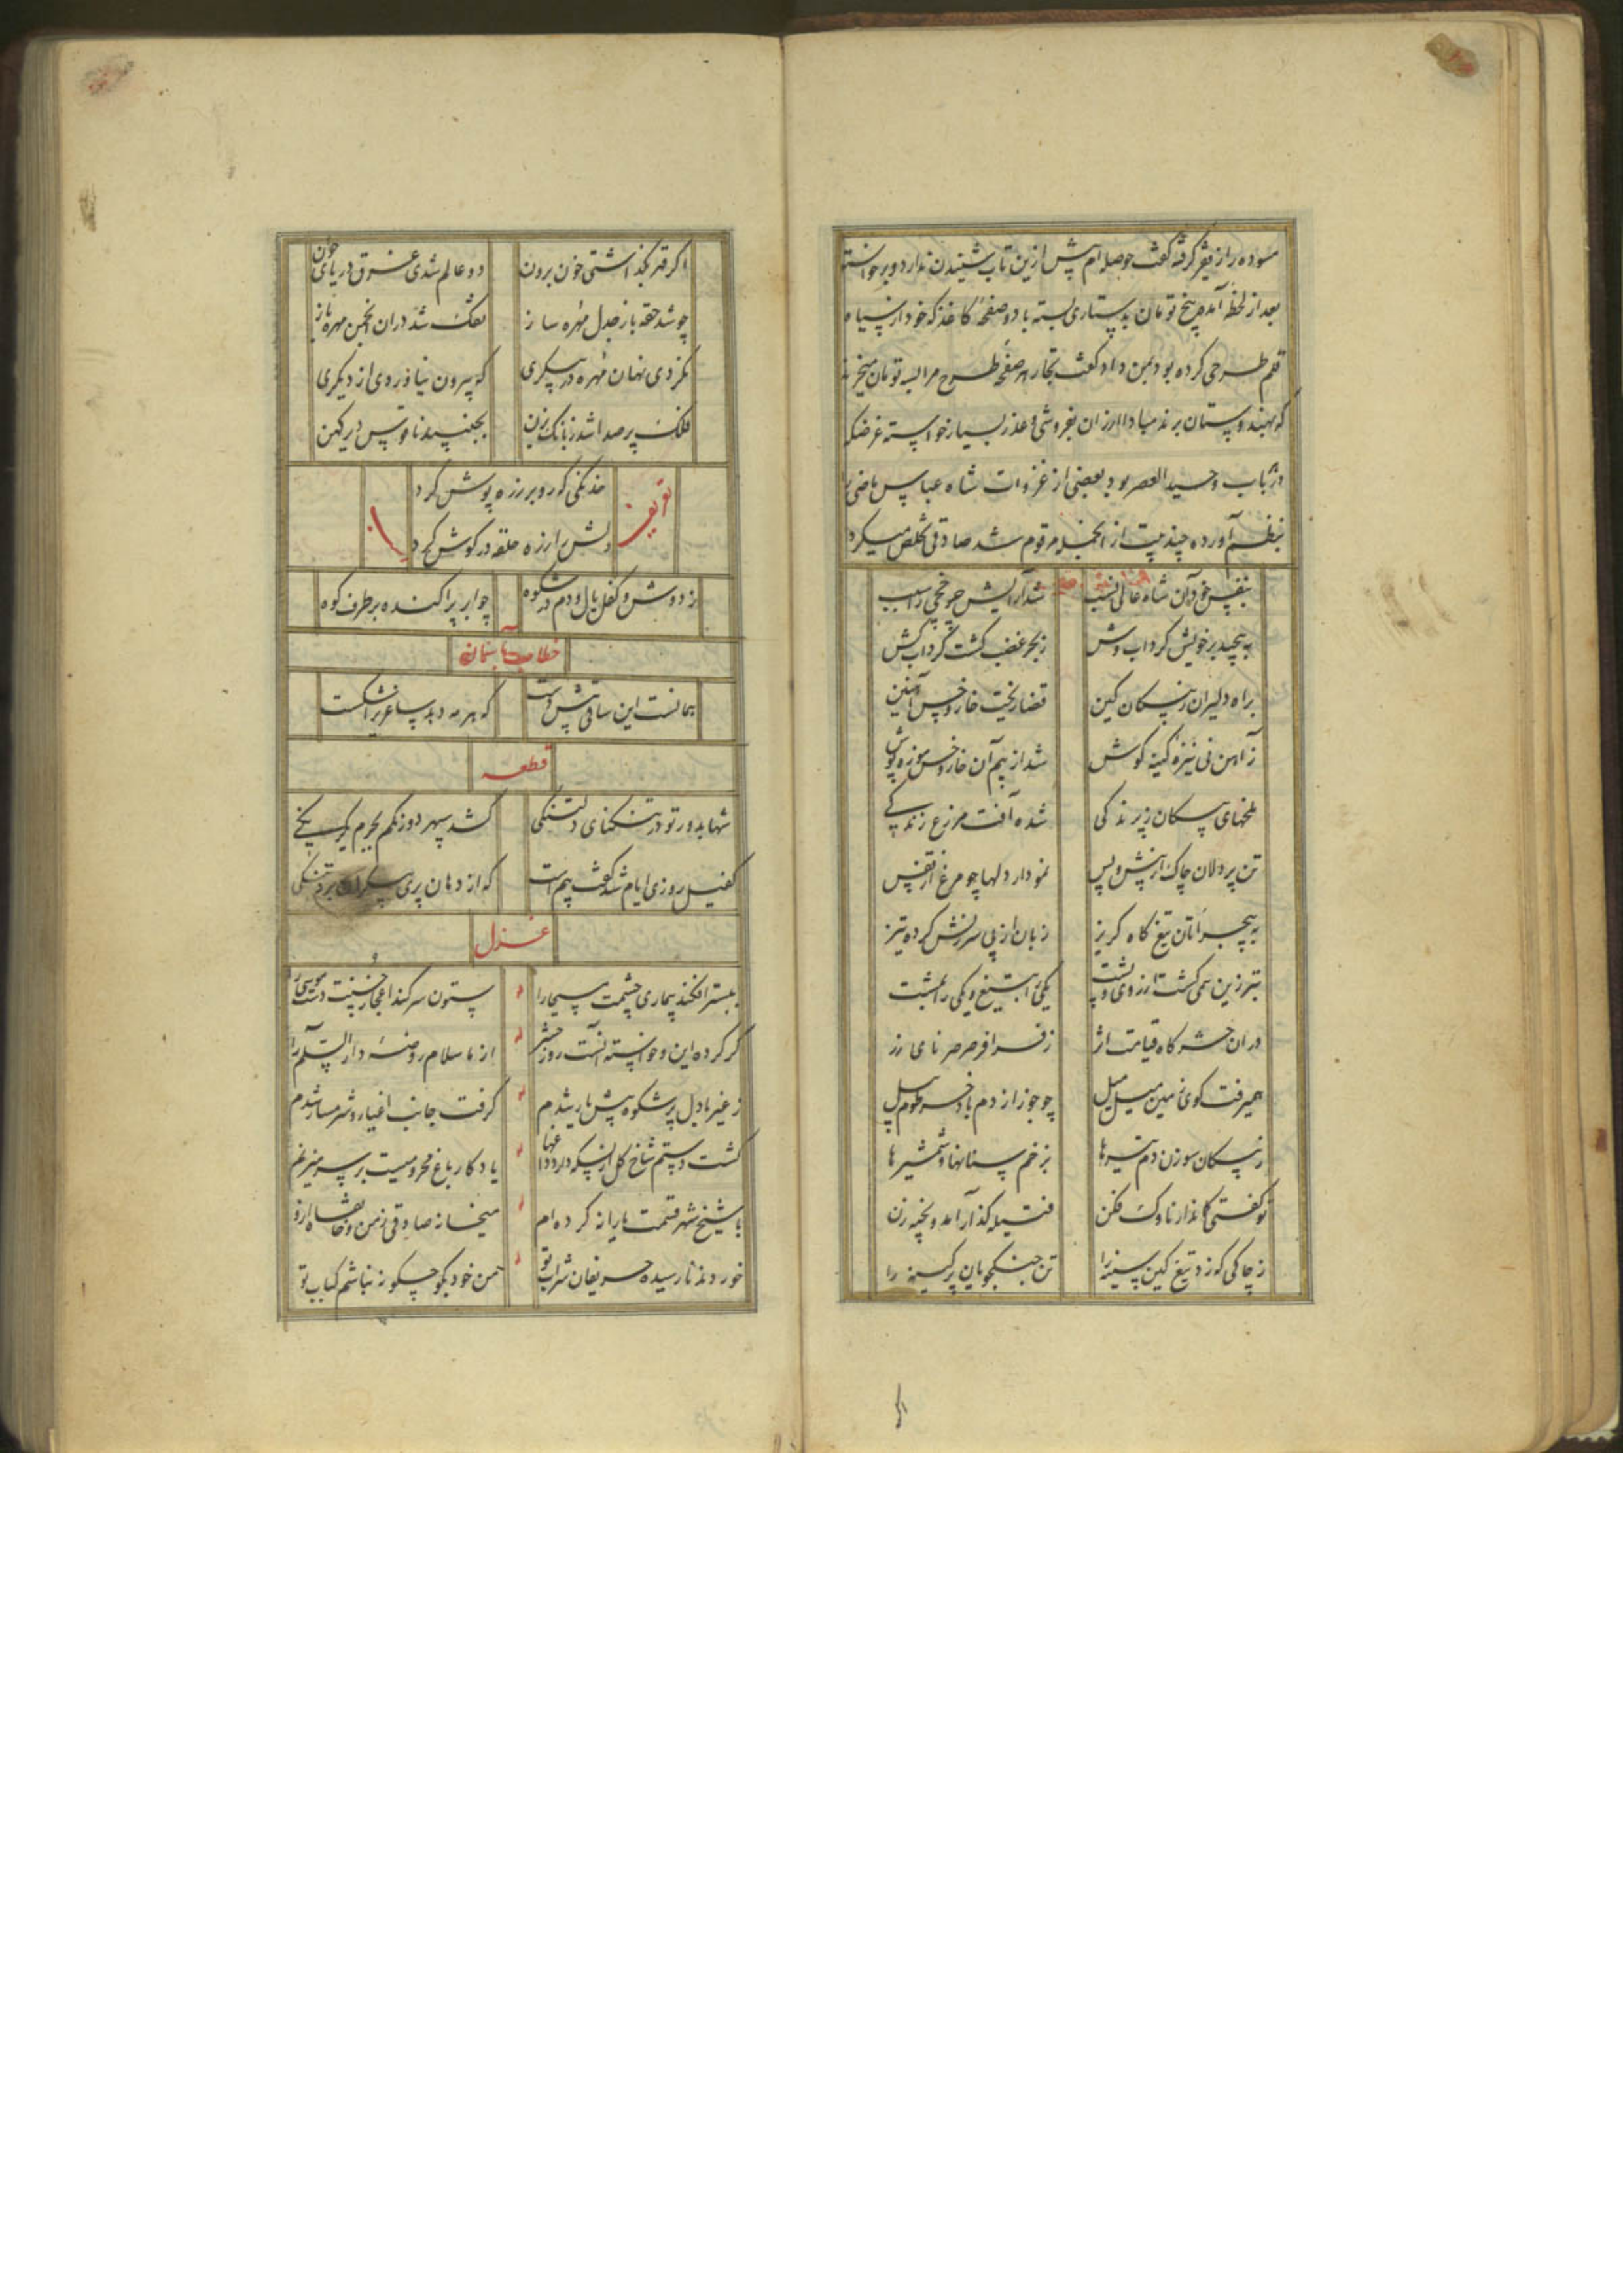 مسوده را از فقیر گرفته گفت حوصله‌ام پیش ازین تاب شنیدن ندارد و برخواسته
بعد از لحظهٔ آمده پنج تومان بدستاری بسته با دو صفحه کاغذ که خود از سیاه
قلم طرحی کرده بود بمن داد گفت تجار هر صفحه طرح مرا بسه تومان میخرند
که بهندوستان برند مبادا ارزان بفروشی و عذر بسیار خواسته غرضکه
درین باب وحید العصر بود بعضی از غزوات شاه عباس ماضی را
بنظم آورده چند بیت از آنجمله مرقوم شد صادقی تخلص میکرد
بنفس خود آن شاه عالی نسب شد آرایش چرخچی را سبب
به پیچید بر خویش گرداب وش ز بحر غضب گشت گرداب کش
براه دلیران ز پیکان کین قضا ریخت خار و خس آهنین
ز آهن نی نیزه کینه کوش شد از بیم آن خار و خس موزه پوش
ملخهای پیکان ز پرندگی شده آفت مزرع زندگی
تن پردلان چاک از پیش و پس نمودار دلها چو مرغ از قفس
به بیجرأتان تیغ گاه گریز زبان از پی سرزنش کرده تیز
تبرزین همی گشت از روی و پشت یکی را به تیغ و یکی را بمشت
در آن حشرگاه قیامت اثر
همیرفت کوی زمین میل میل چو جوز از دم باد خرطوم پیل
ز پیکان سوزن دم تیرها بزخم سنانها و شمشیرها
تو گفتی کماندار ناوک فکن فتیله گذار آمد و بخیه زن
ز چاکی که زد تیغ کین سینه را تن جنگجویان پر کینه را
اگر قهر بگذاشتی خون برون دو عالم شدی غرق دریای خون
چو شد حقه باز جدل مهره ساز تفک شد در آن انجمن مهره باز
نکردی نهان مهره در پیکری که بیرون نیاوردی از دیگری
فلک پر صدا شد ز بانگ بزن بجنبید ناقوس دیر کهن
تعریف
خدنگی که رو بر زره پوش کرد
دلش را زره حلقه در گوش کرد
ز دوش و کفل یال و دم در شکوه چو ابر پراکنده بر طرف کوه
خطاب بآسمان
همانست این ساقی که هر مه دهد ساغری را شکست
قطعه
شها بدور تو در تنگنای دلتنگی کشد سپهر دو رنگم بجرم یکرنگی
کفیل روزی ایام شد که از دهان پری پیکران برد تنگی
غزل
به بستر افکند بیماری چشمت مسیحا را ستون سر کند اعجاز حسنت دست موسی را
گر کرده این و خواسته آنست روز حشر از ما سلام روضهٔ دار السلام را
ز غیر با دل پر شکوه پیش یار شدم گرفت جانب اغیار و شرمسار شدم
گشت دستم شاخ گل از بسکه دارد داغها یادگار باغ محرومیست بر سر میزنم
با شیخ شهر قسمت یارانه کرده‌ام میخانه صادقی ز من و خانقاه ازو
خوردند نارسیده حریفان شراب تو من خود بگو چگونه نباشم کباب تو